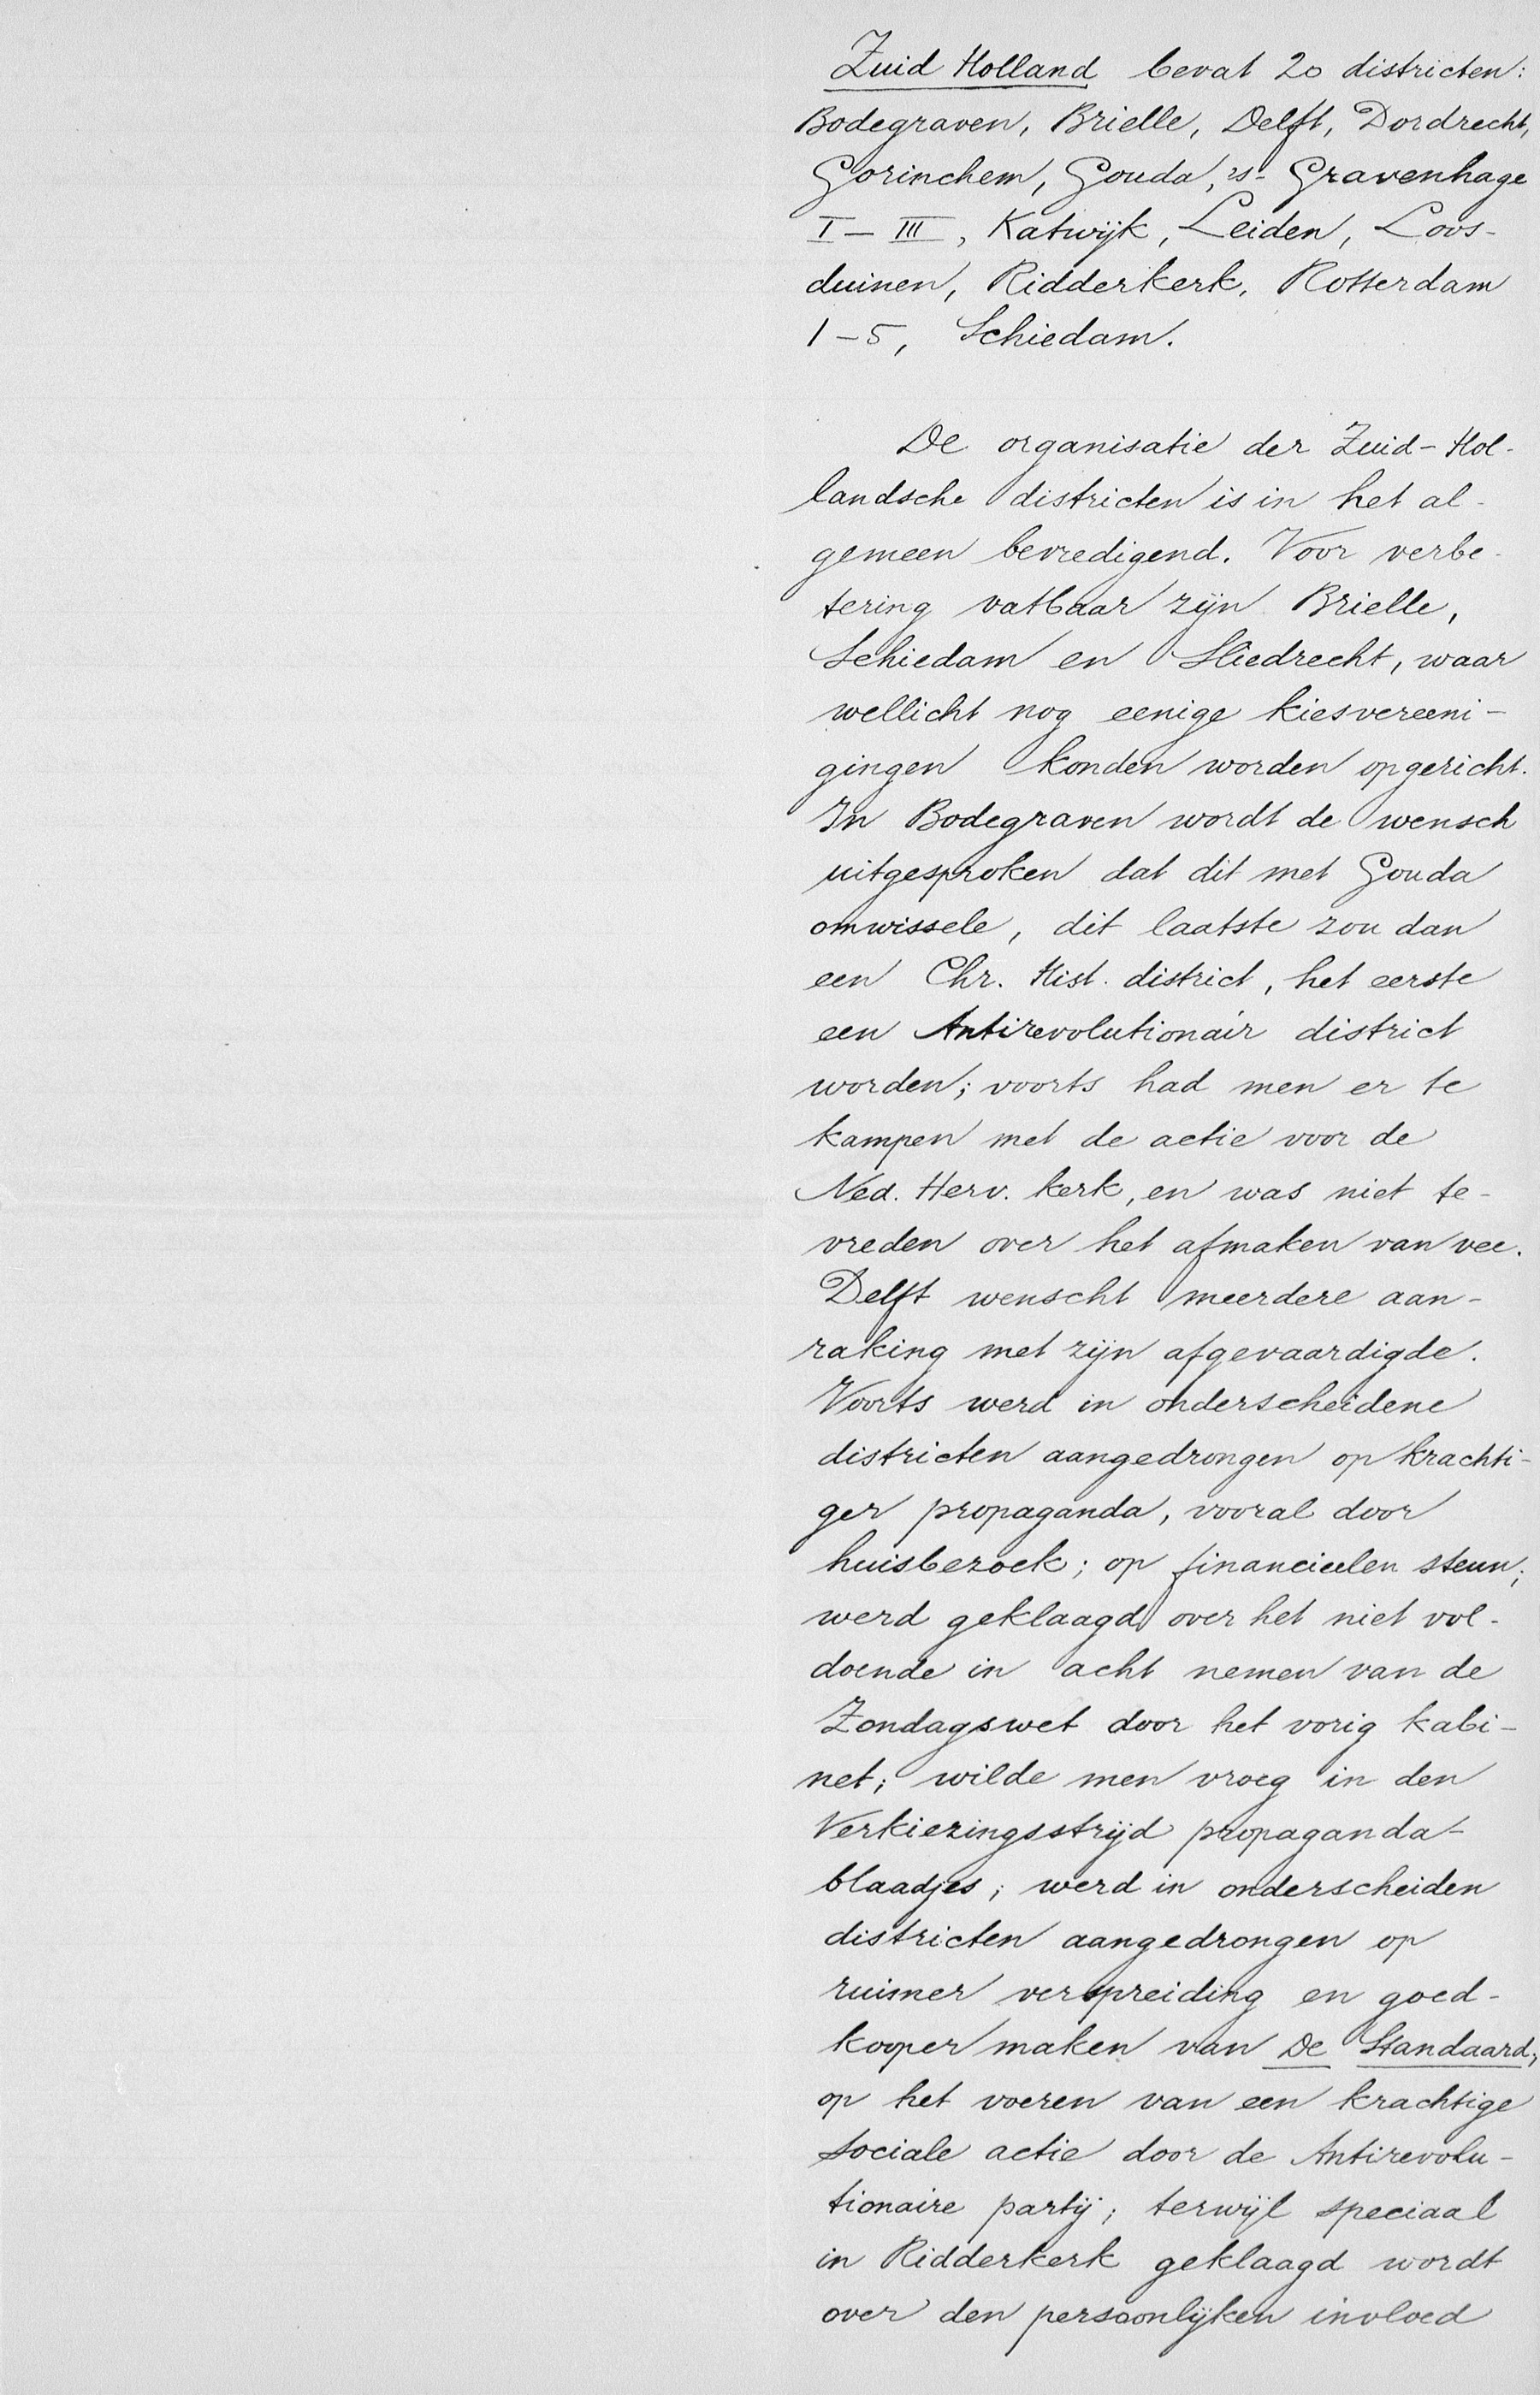 Zuid Holland bevat 20 districten:
Bodegraven, Brielle, Delft, Dordrecht,
Gorinchem, Gouda, 's-Gravenhage
I-III, Katwijk, Leiden, Loos-
duinen, Ridderkerk, Rotterdam
1-5, Schiedam.
De organisatie der Zuid-Hol-
landsche districten is in het al-
gemeen bevredigend. Voor verbe-
tering vatbaar zijn Brielle,
Schiedam en Sliedrecht, waar
wellicht nog eenige kiesvereeni-
gingen konden worden opgericht.
In Bodegraven wordt de wensch
uitgesproken dat dit met Gouda
omwissele, dit laatste zou dan
een Chr. Hist. district, het eerste
een Antirevolutionair district
worden; voorts had men er te
kampen met de actie voor de
Ned. Herv. kerk, en was niet te-
vreden over het afmaken van vee.
Delft wenscht meerdere aan-
raking met zijn afgevaardigde.
Voorts werd in onderscheidene
districten aangedrongen op krachti-
ger propaganda, vooral door
huisbezoek; op financieelen steun;
werd geklaagd over het niet vol-
doende in acht nemen van de
Zondagswet door het vorig kabi-
net; wilde men vroeg in den
Verkiezingsstrijd propaganda-
blaadjes; werd in onderscheiden
districten aangedrongen op
ruimer verspreiding en goed-
kooper maken van De Standaard;
op het voeren van een krachtige
sociale actie door de Antirevolu-
tionaire partij; terwijl speciaal
in Ridderkerk geklaagd wordt
over den persoonlijken invloed